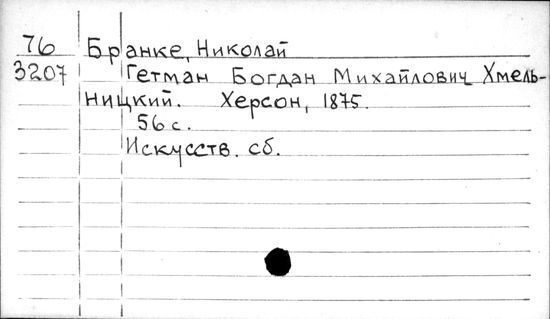 76 Бранке, Николай
3207 Гетман Богдан Михайлович Хмель-
ницкий. Херсон, 1875.
56 с.
Искусств. сб.